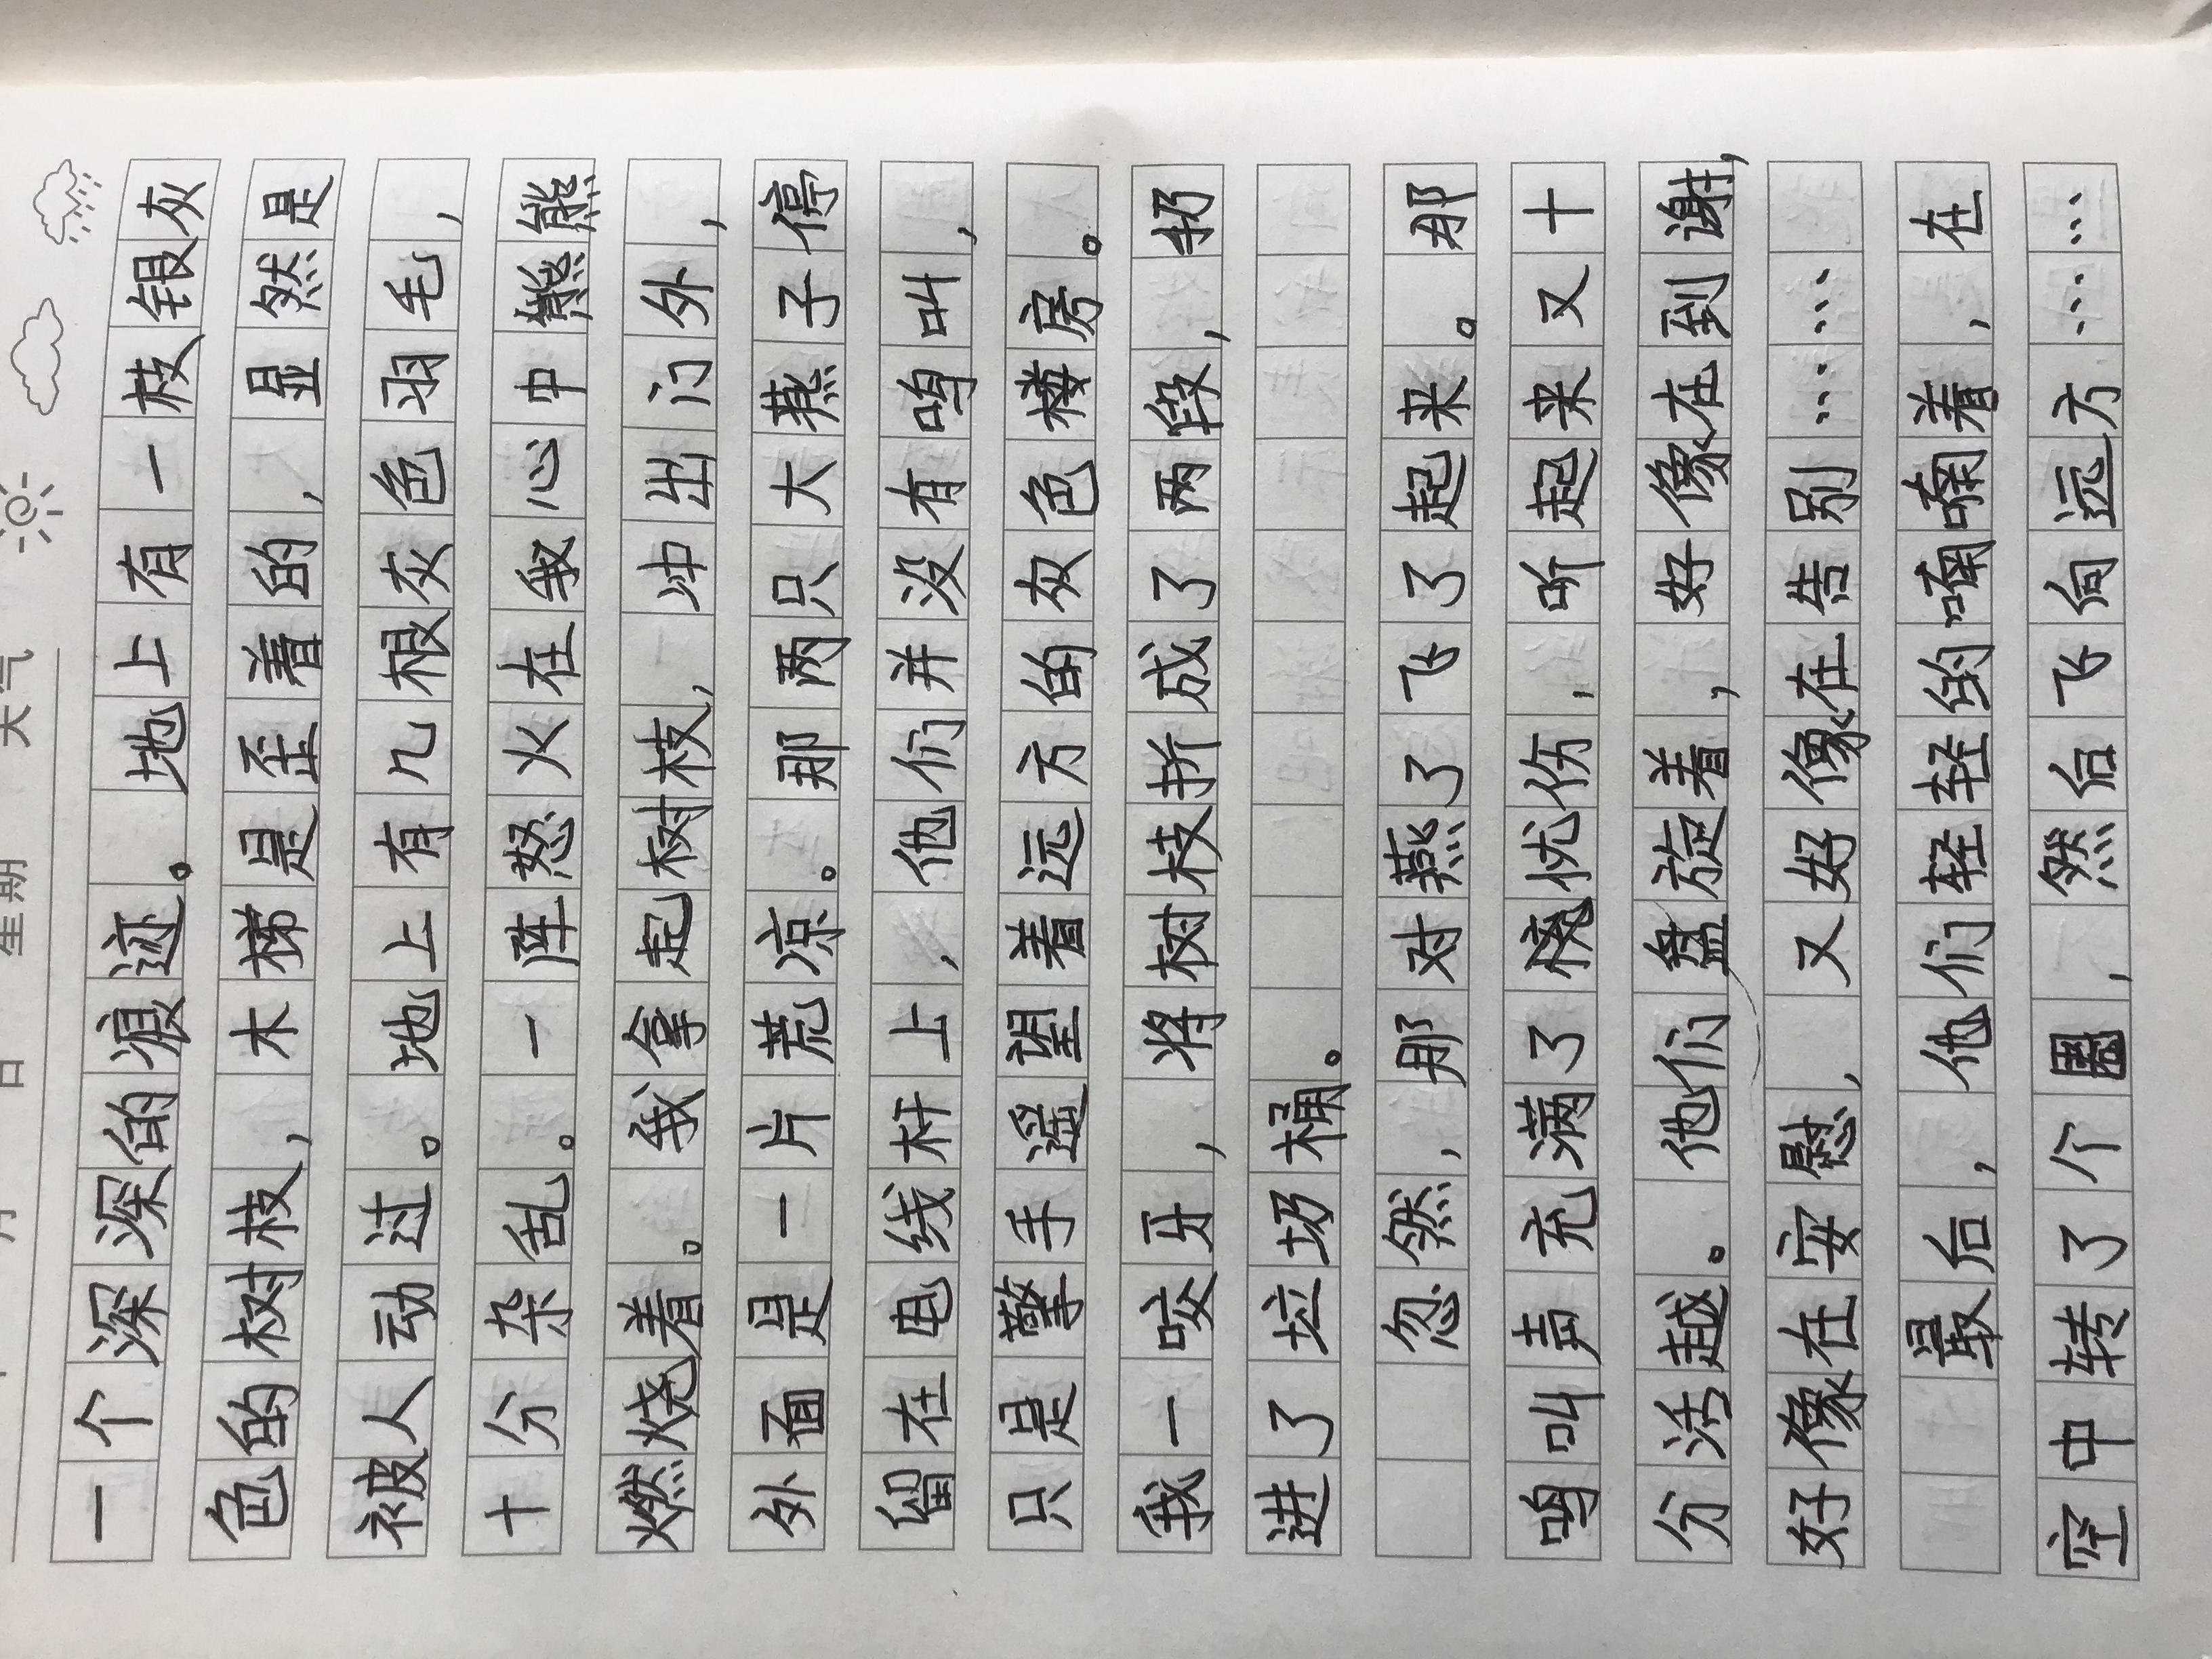 月 日 星期 天气
一个深深的痕迹。地上有一枝银灰
色的树枝,木梯是歪着的,显然是
被人动过。地上有几根灰色羽毛,
十分杂乱。一阵怒火在我心中熊熊
燃烧着。我拿起树枝,冲出门外,
外面是一片荒凉。那两只大燕子停
留在电线杆上,他们并没有鸣叫,
只是擎手遥望着远方的灰色楼房。
我一咬牙,将树枝折成了两段,扔
进了垃圾桶。
忽然,那对燕了飞了起来。那
鸣叫声充满了忧伤,听起来又十
分活越。他们盘旋着,好像在到谢,
好像在安慰,又好像在告别……
最后,他们轻轻的喃喃着,在
空中转了个圈,然后飞向远方……